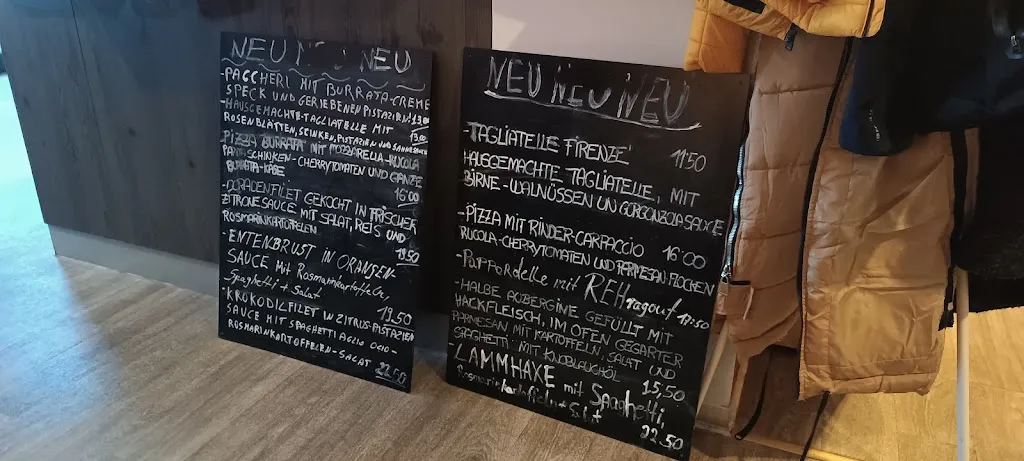 NEU NEU NEU
-PACCHERI MIT BURRATA-CREME
SPECK UND GERIEBENEN PISTAZIEN
-HAUSGEMACHTE-TAGLIATELLE MIT
ROSENBLÄTTEN, SCINKEN, PISTAZIEN UND
-PIZZA BURRATA MIT MOZZARELLA-RUCOLA
PARMASCHINKEN-CHERRYTOMATEN UND GANZE
BURRATA-KÄSE 16'00
-DORADENFILET GEKOCHT IN FRISCHER
ZITRONESAUCE MIT SALAT, REIS UND
ROSMARINKARTOFFELN
-ENTENBRUST IN ORANJEN-
SAUCE mit Rosmarinkartoffeln,
-Spaghetti + Salat 19.50
-KROKODILFILET IN ZITRUS-PISTAZIEN
SAUCE MIT SPAGHETTI AGLIO OGIO-
ROSMARINKARTOFFELN-SALAT 22.50
NEU NEU NEU
-TAGLIATELLE FIRENZE' 11'50
HAUSGEMACHTE TAGLIATELLE, MIT
BIRNE-WALNÜSSEN UN GORGONZOLA SAUCE
-PIZZA MIT RINDER-CARPACCIO 16'00
RUCOLA-CHERRYTOMATEN UND PARMESAN-FLOCKEN
-Pappardelle mit REHragout 17.50
-HALBE AUBERGINE GEFÜLLT MIT
HACKFLEISCH, IM OFEN GEGARTER
PARMESAN MIT KARTOFFELN, SALAT UND
SPAGHETTI MIT KNOBLAUCHÖL 15,50
LAMMHAXE mit Spaghetti,
Rosmarinkartoffeln + Salat 22.50